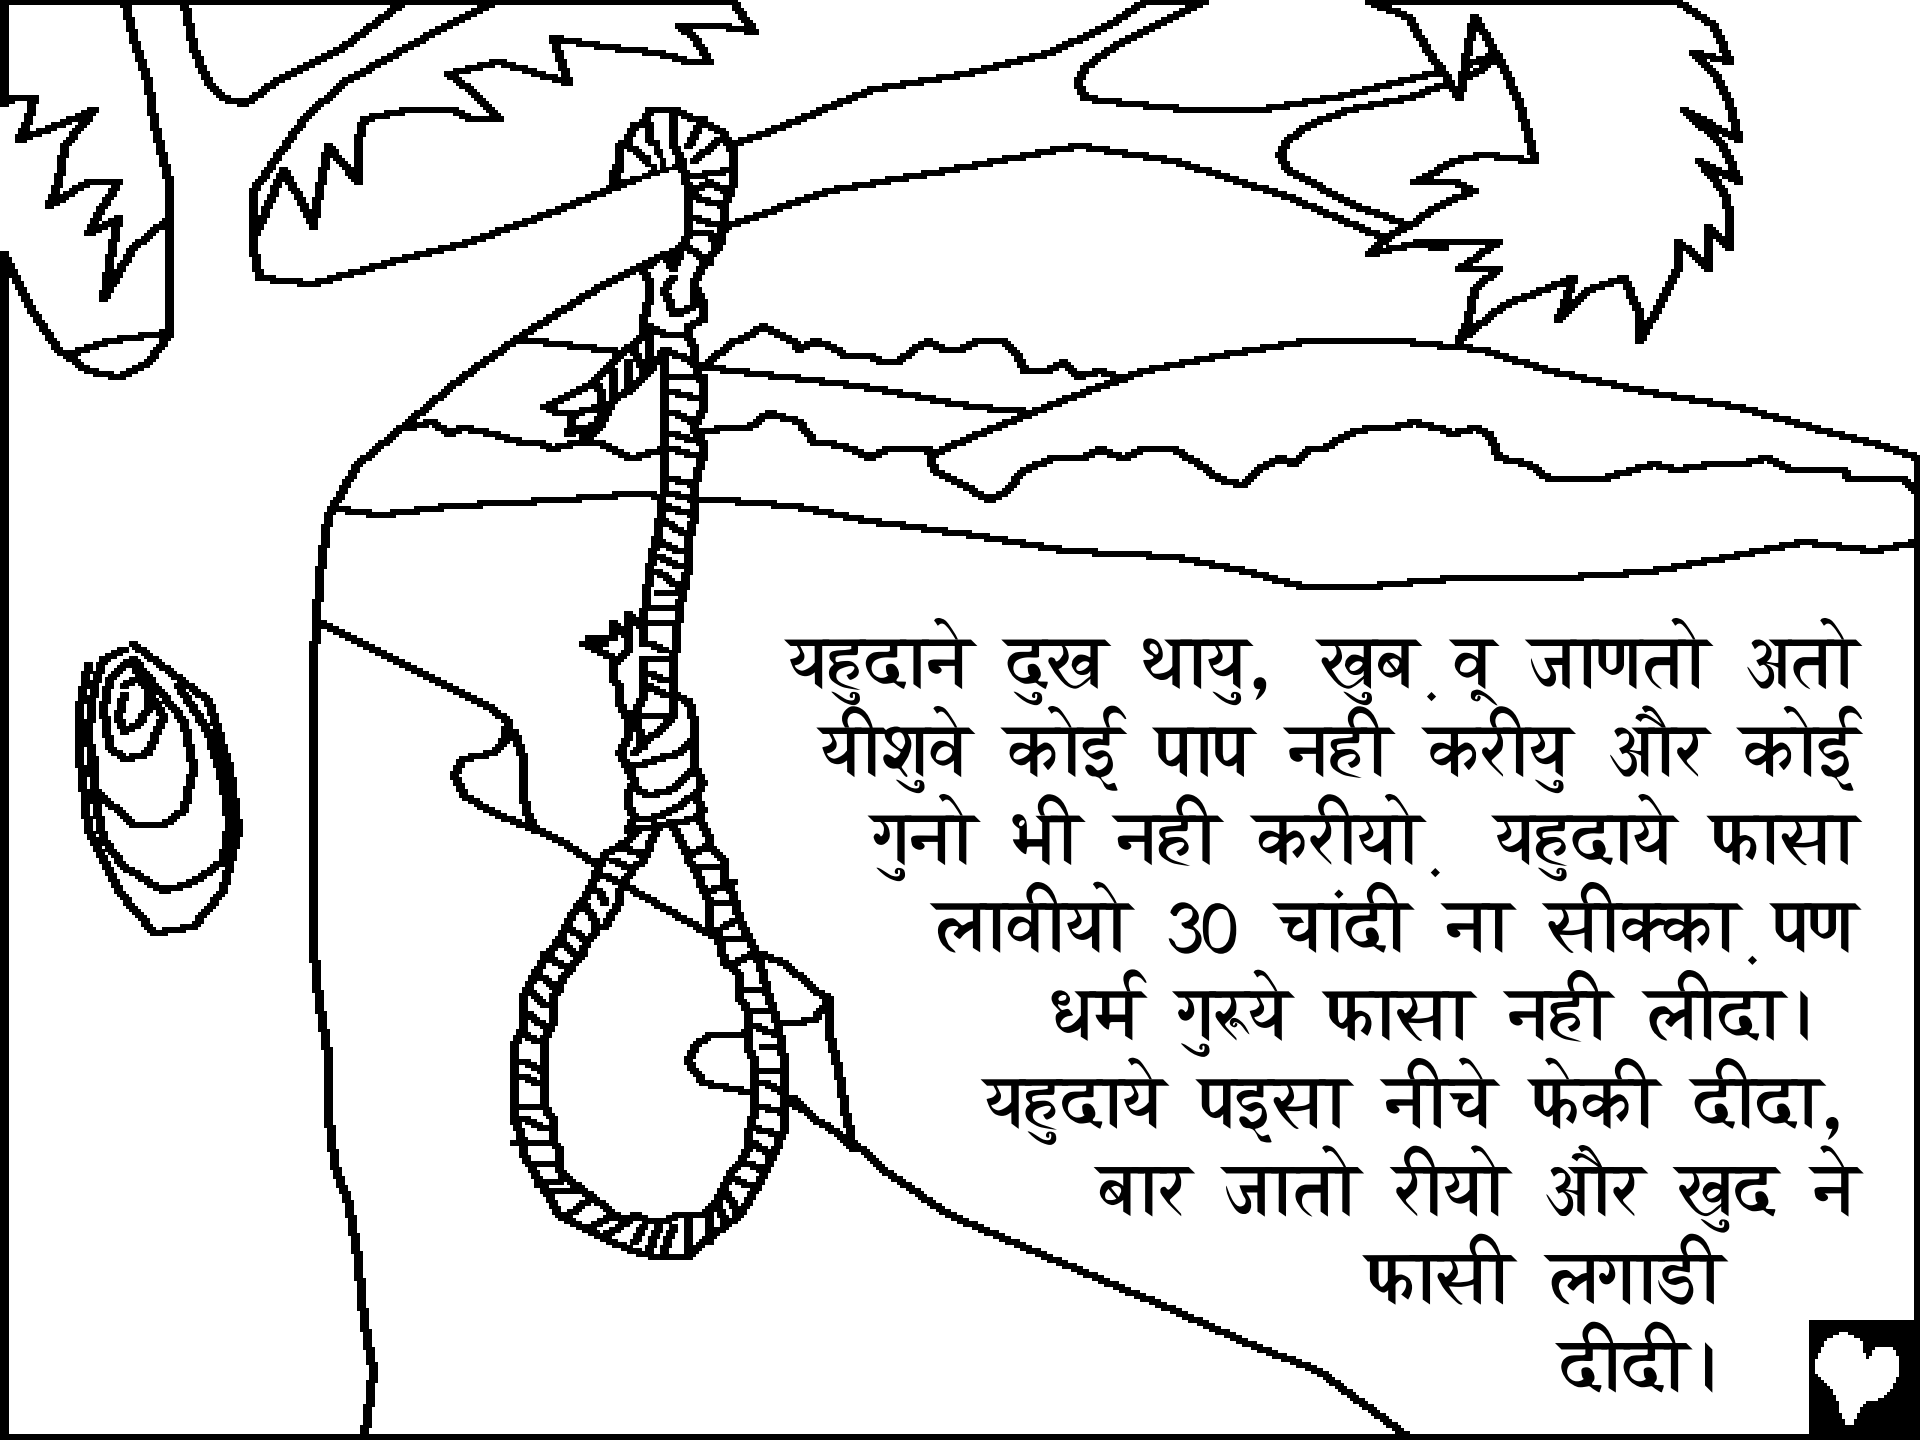 यहुदाने दुख थायु, खुब . वू जाणतो अतो
यीशुवे कोई पाप नही करीयु और कोई
गुनो भी नही करीयो . यहुदाये फासा
लावीयो 30 चांदी ना सीक्का . पण
धर्म गुरूये फासा नही लीदा।
यहुदाये पइसा नीचे फेकी दीदा,
बार जातो रीयो और खुद ने
फासी लगाडी
दीदी।